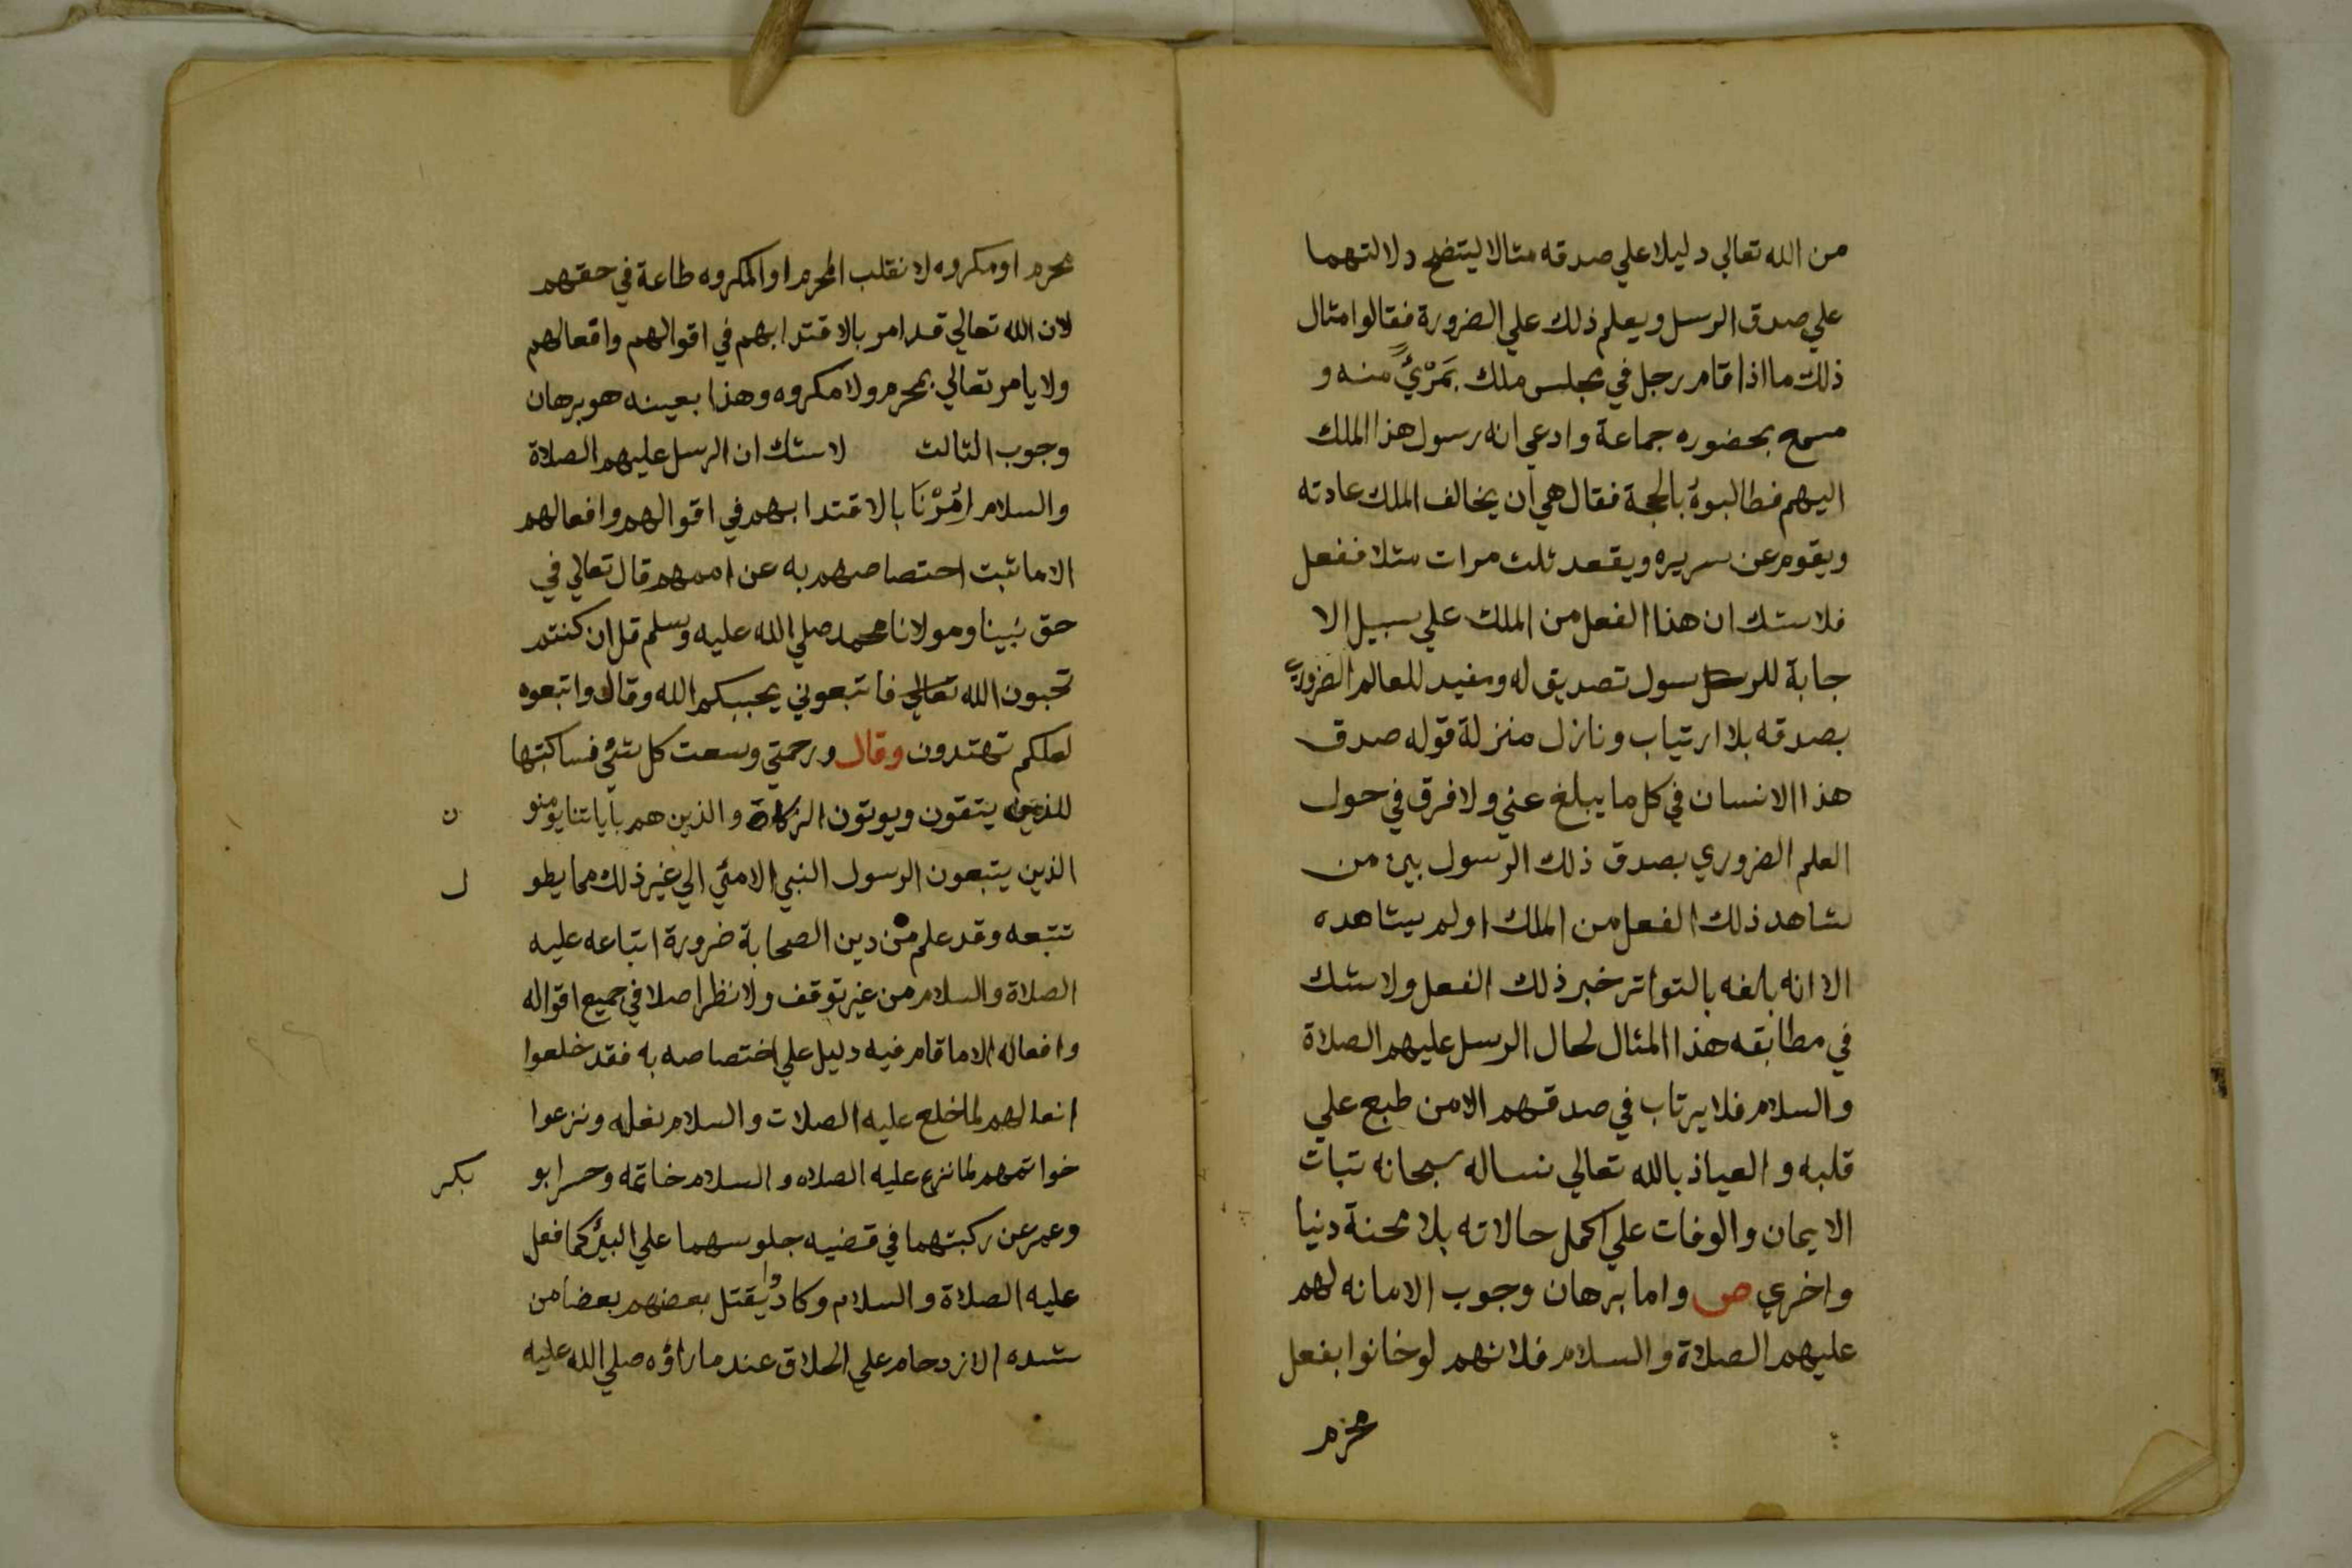 من الله تعالي دليلا علي صدقه مثالا ليتضح دلالتهما
علي صدق الرسل ويعلم ذلك علي الضرورة فقالوا مثال
ذلك ما اذا قام رجل في مجلس ملك بمَرْئٍي منه و
مسمع بحضوره جماعة وادعي انه رسول هذا الملك
اليهم فطالبوهُ بالحجة فقال هي أن يخالف الملك عادته
ويقوم عن سريره ويقعد ثلث مرات مثلا ففعل
فلا شك ان هذا الفعل من الملك علي سبيل الا
جابة للرسول تصديق له ومفيد للعالم الضروري
بصدقه بلا ارتياب ونازل منزلة قوله صدق
هذا الانسان في كل ما يبلغ عني ولا فرق في حول
العلم الضروري بصدق ذلك الرسول بين من
شاهد ذلك الفعل من الملك اولم يشاهده
الا انه بلغه بالتواتر خبر ذلك الفعل ولا شك
في مطابقه هذا المثال لحال الرسل عليهم الصلاة
والسلام فلا يرتاب في صدقهم الا من طبع علي
قلبه والعياذ بالله تعالي نساله سبحانه تبات
الايمان والوفات علي اكمل حالاته بلا محنة دنيا
واخري ص واما برهان وجوب الامانه لهم
عليهم الصلاة والسلام فلانهم لوخانوا بفعل
محرم
محرم اومكروه لانقلب المحرم اوالمكروه طاعة في حقهم
لان الله تعالي قد امر بالاقتدا بهم في اقوالهم وافعالهم
ولا يامر تعالي بمحرم ولا مكروه وهذا بعينه هو برهان
وجوب الثالث لا شك ان الرسل عليهم الصلاة
والسلام اُمِرْنَا بالاقتدا بهم في اقوالهم وافعالهم
الا ما ثبت اختصاصهم به عن اممهم قال تعالي في
حق نبينا ومولانا محمد صلي الله عليه وسلم قل ان كنتم
تحبون الله تعالي فاتبعوني يحببكم الله وقال واتبعوه
لعلكم تهتدون وقال ورحمتي وسعت كل شئ فساكتبها
للذين يتقون ويوتون الزكاة والذين هم بأياتنا يومنو ن
الذين يتبعون الرسول النبي الامئي الي غير ذلك مما يطو ل
تتبعه وقد علم من دين الصحابة ضرورة اتباعه عليه
الصلاة والسلام من غير توقف ولا نظر اصلا في جميع اقواله
وافعاله الا ما قام فيه دليل علي اختصاصه به فقد خلعوا
انعالهم لما خلع عليه الصلات والسلام نعله ونزعوا
خواتمهم لما نزع عليه الصلاه والسلام خاتمه وحسر ابو بكر
وعمر عن ركبتهما في قضيه جلوسهما علي البئر كما فعل
عليه الصلاة والسلام وكادوا يقتل بعضهم بعضا من
شده الازدحام علي الحلاق عند ما راؤه صلي الله عليه